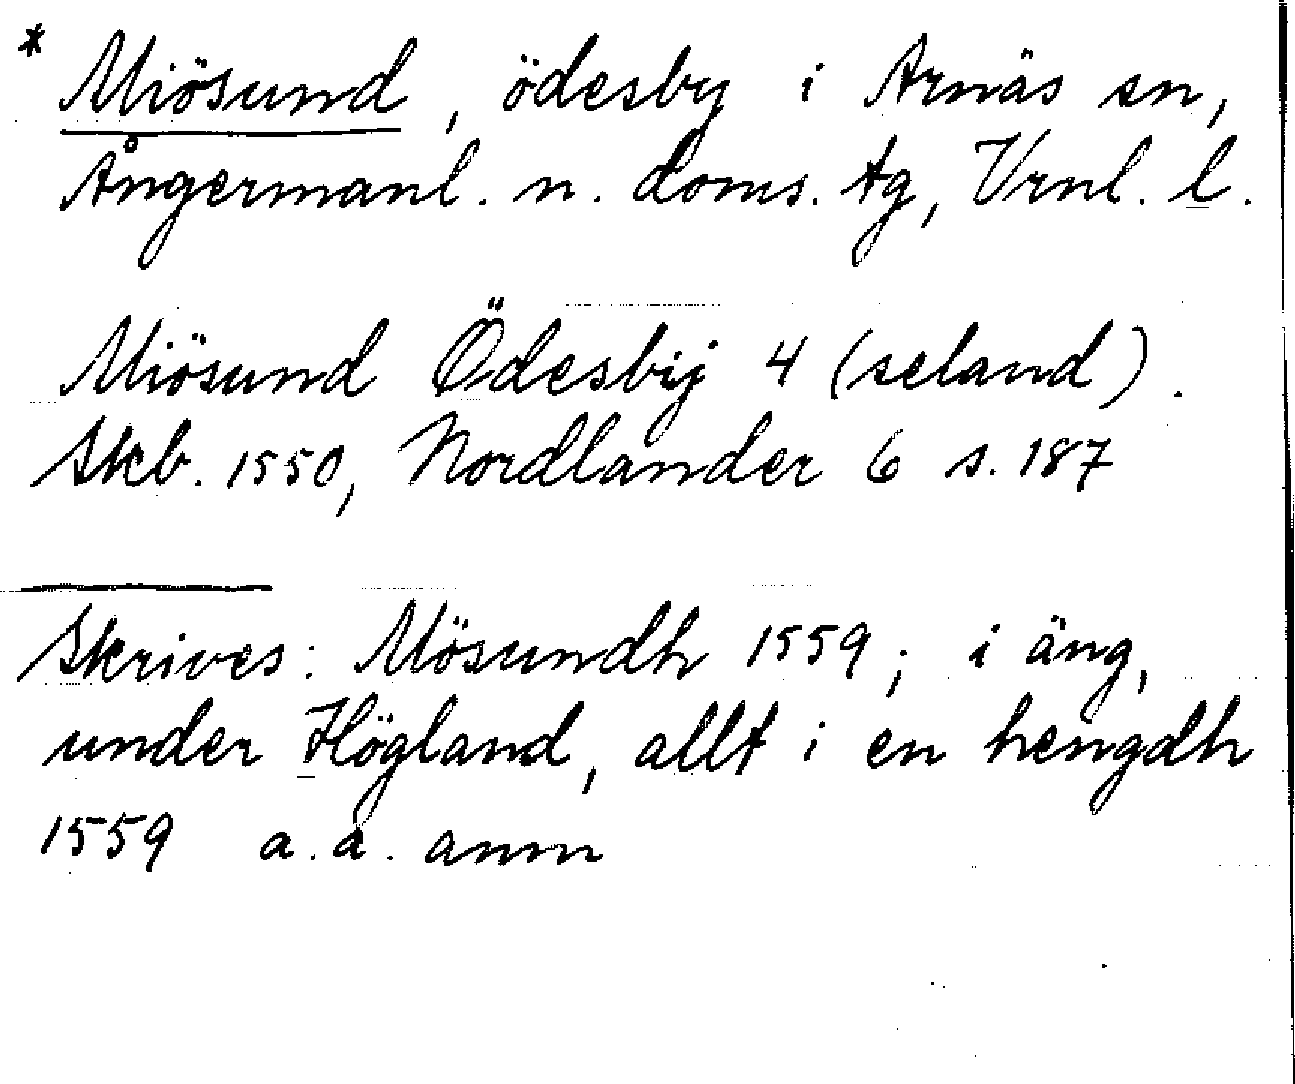 * Miösund, ödesby i Arnäs sn,
Ångermanl. n. doms. tg, Vrnl. l.
Miösund Ödesbij 4 (seland).
Skb. 1550, Nordlander 6 s. 187
Skrives: Mösundh 1559; i äng,
under Högland, allt i en hengdh
1559 a. a. anm